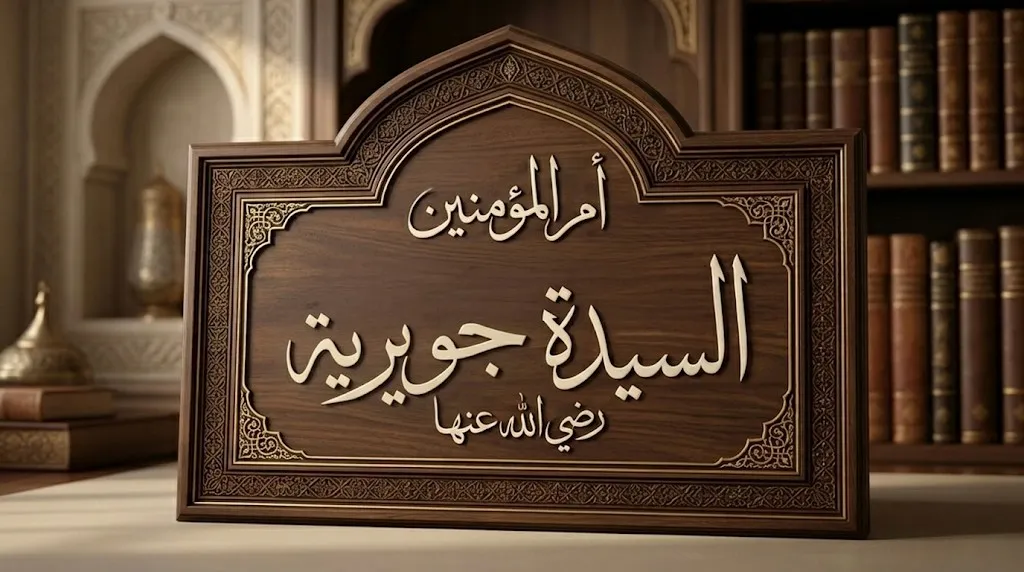 أم المؤمنين
السيدة جويرية
رضي الله عنها